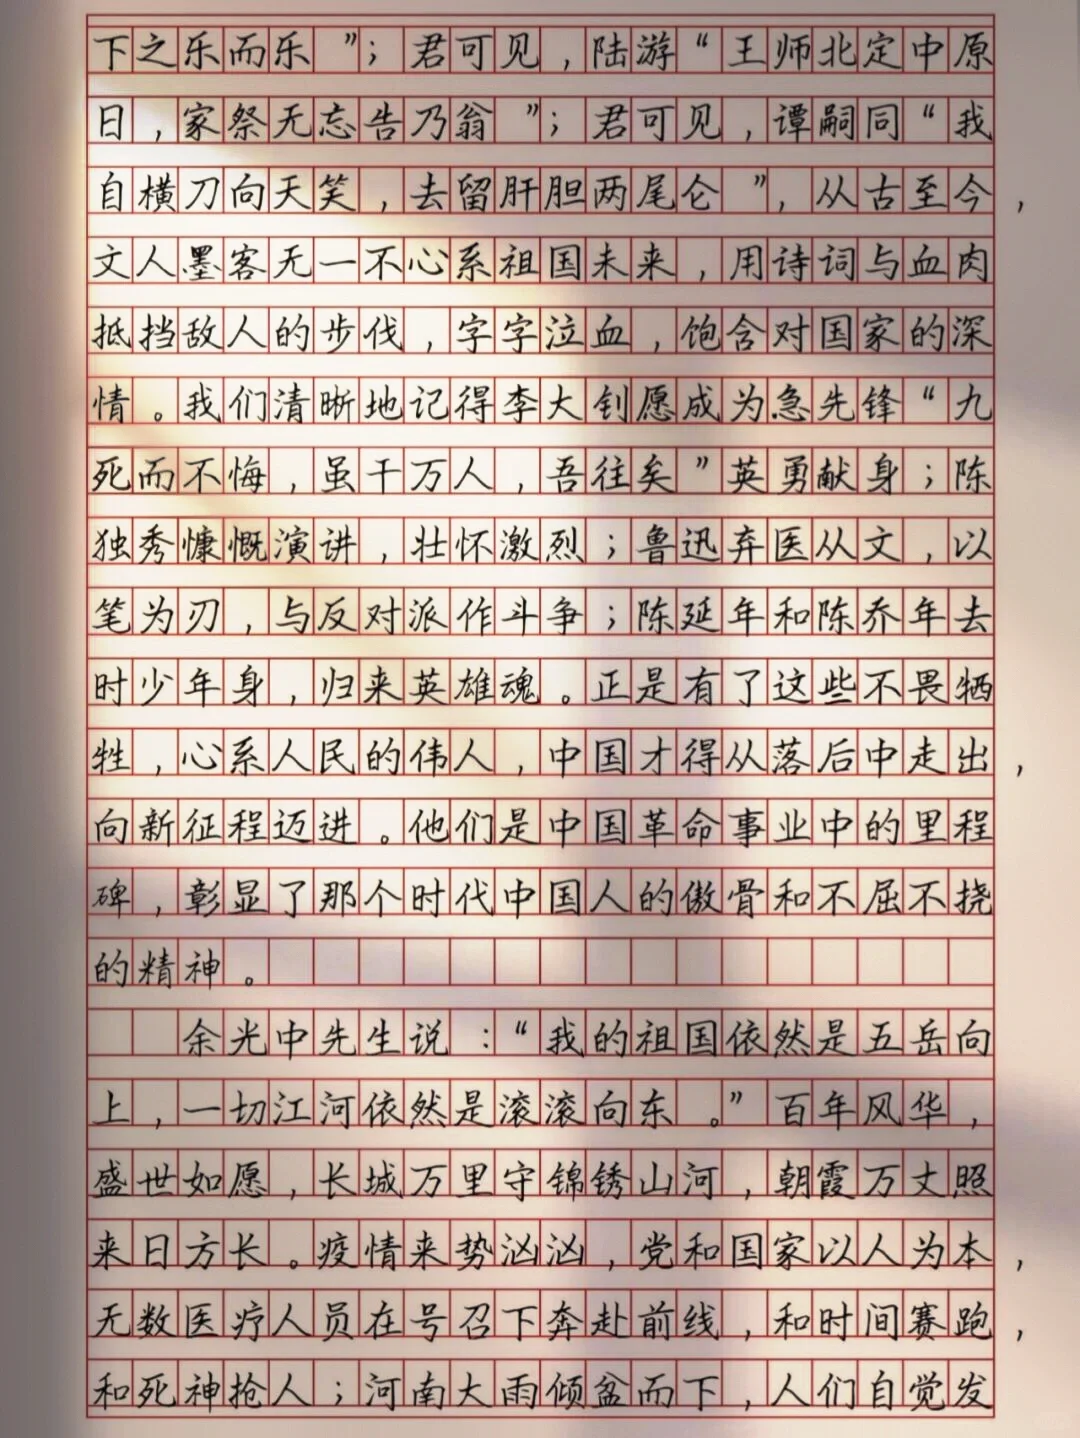 下之乐而乐”；君可见，陆游“王师北定中原
日，家祭无忘告乃翁”；君可见，谭嗣同“我
自横刀向天笑，去留肝胆两尾仑”，从古至今，
文人墨客无一不心系祖国未来，用诗词与血肉
抵挡敌人的步伐，字字泣血，饱含对国家的深
情。我们清晰地记得李大钊愿成为急先锋“九
死而不悔，虽千万人，吾往矣”英勇献身；陈
独秀慷慨演讲，壮怀激烈；鲁迅弃医从文，以
笔为刃，与反对派作斗争；陈延年和陈乔年去
时少年身，归来英雄魂。正是有了这些不畏牺
牲，心系人民的伟人，中国才得从落后中走出，
向新征程迈进。他们是中国革命事业中的里程
碑，彰显了那个时代中国人的傲骨和不屈不挠
的精神。
余光中先生说：“我的祖国依然是五岳向
上，一切江河依然是滚滚向东。”百年风华，
盛世如愿，长城万里守锦锈山河，朝霞万丈照
来日方长。疫情来势汹汹，党和国家以人为本，
无数医疗人员在号召下奔赴前线，和时间赛跑，
和死神抢人；河南大雨倾盆而下，人们自觉发